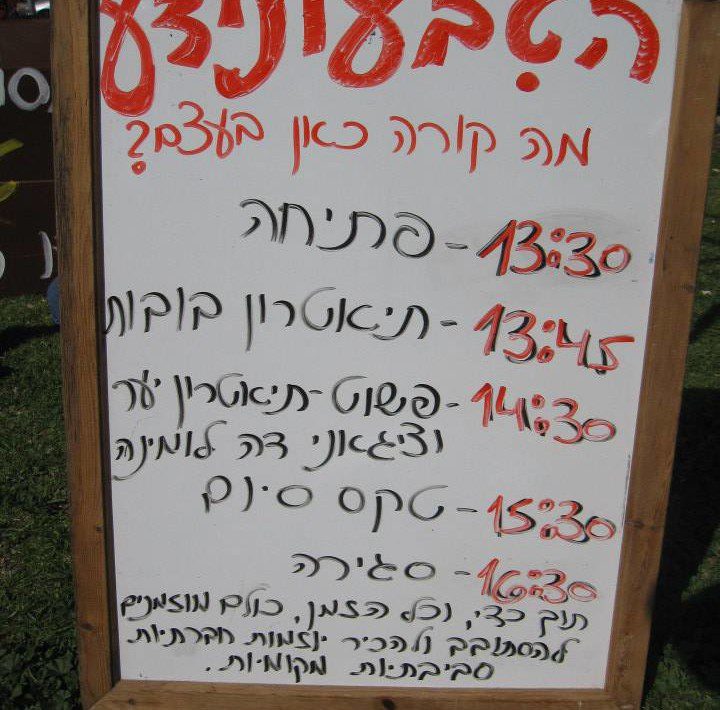 הטבעונידע
מה קורה כאן בעצם?
13:30 - פתיחה
13:45 - תיאטרון בובות
14:30 - פשוט-תיאטרון יער
וציגאני דה לומינה
15:30 - טקס סיום
16:30 - סגירה
תוך כדי, וכל הזמן, כולם מוזמנים
להסתובב ולהכיר יוזמות חברתיות
סביבתיות מקומיות.